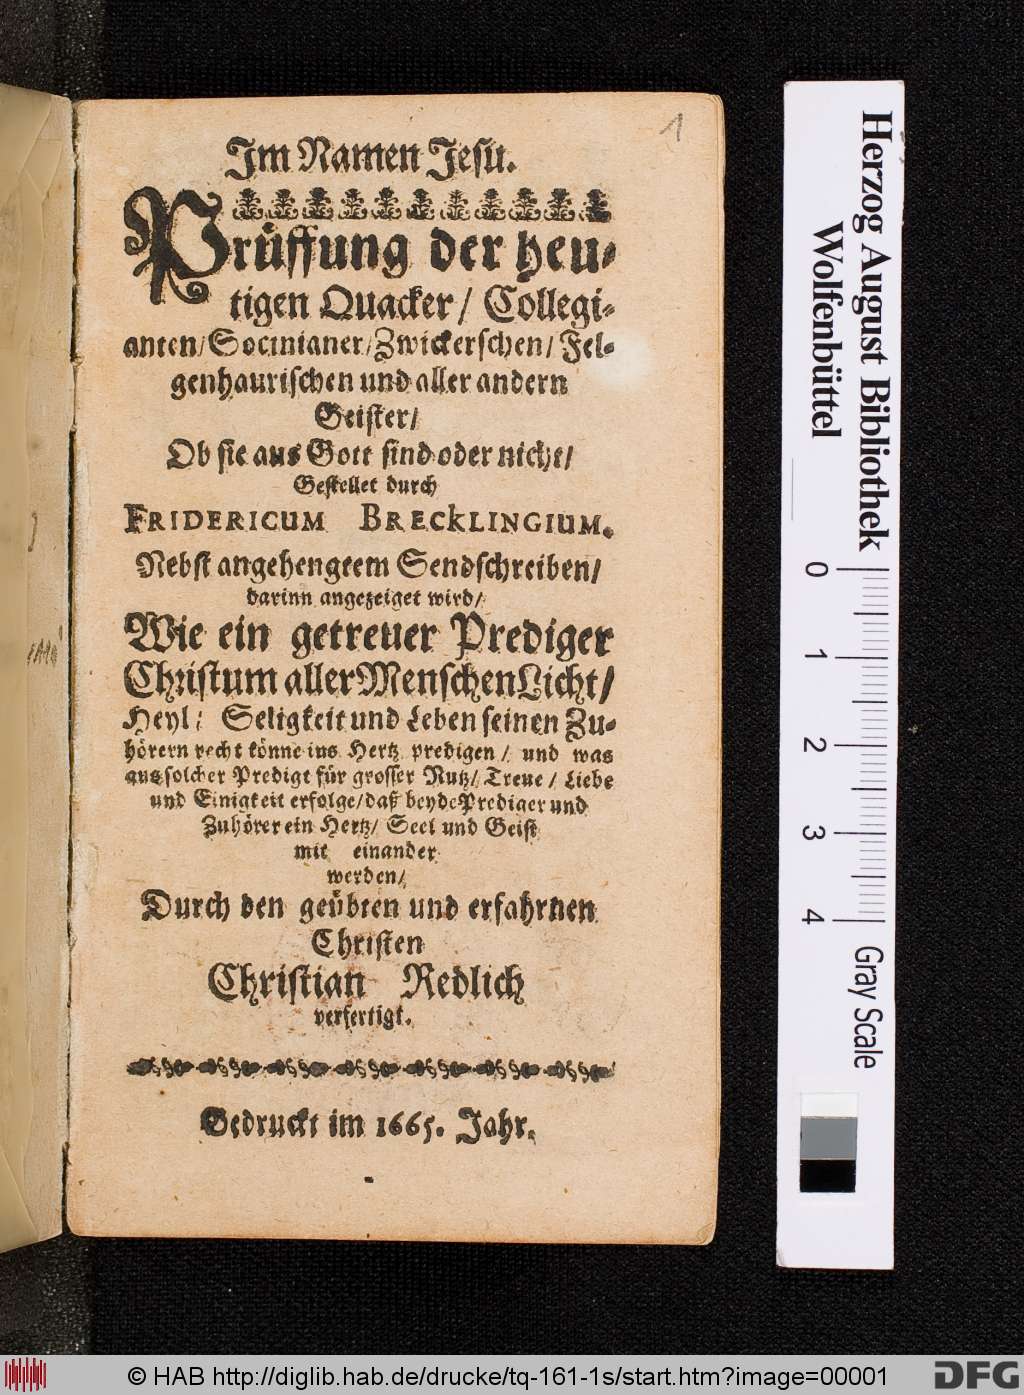 1
Im Namen Jesu.
Prüffung der heu-
tigen Quacker/ Collegi-
anten/ Socinianer/ Zwickerschen/ Fel-
genhaurischen und aller andern
Geister/
Ob sie aus Gott sind oder nicht/
Gestellet durch
FRIDERICUM BRECKLINGIUM.
Nebst angehengtem Sendschreiben/
darinn angezeiget wird/
Wie ein getreuer Prediger
Christum aller Menschen Licht/
Heyl/ Seligkeit und Leben seinen Zu-
hörern recht könne ins Hertz predigen/ und was
aus solcher Predigt für grosser Nutz/ Treue/ Liebe
und Einigkeit erfolge/ daß beyde Prediger und
Zuhörer ein Hertz/ Seel und Geist
mit einander
werden/
Durch den geübten und erfahrnen
Christen
Christian Redlich
verfertigt.
Gedruckt im 1665. Jahr.
Herzog August Bibliothek
Wolfenbüttel
0
1
2
3
4
Gray Scale
© HAB http://diglib.hab.de/drucke/tq-161-1s/start.htm?image=00001
DFG